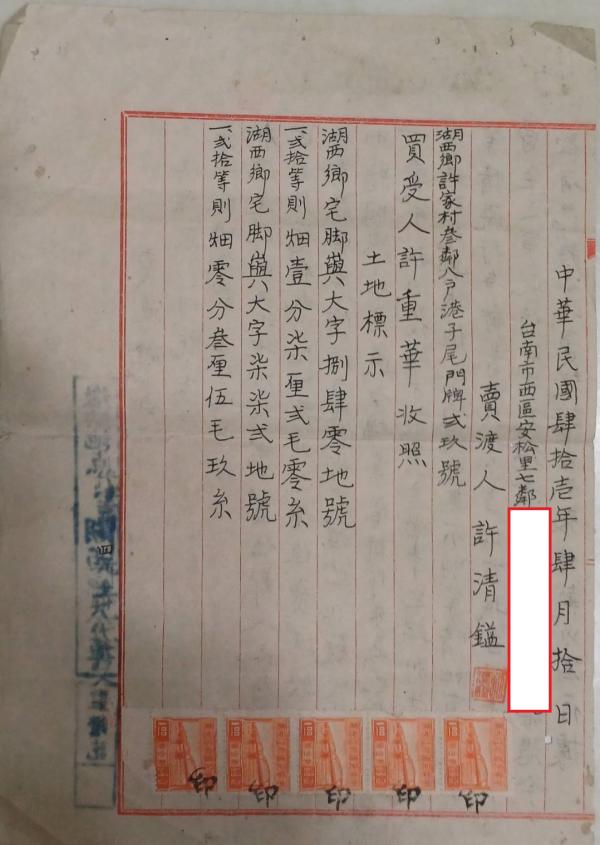 中華民國肆拾壱年肆月拾日
台南市西區安松里七鄰
賣渡人 許清鎰
湖西鄉許家村叁鄰八戶港子尾門牌弍玖號
買受人許重華收照
土地標示
湖西鄉宅脚與大字捌肆零地號
一、弍拾等則畑壹分柒厘弍毛零糸
湖西鄉宅脚與大字柒柒弍地號
一、弍拾等則畑零分叁厘伍毛玖糸
印
印
印
印
印